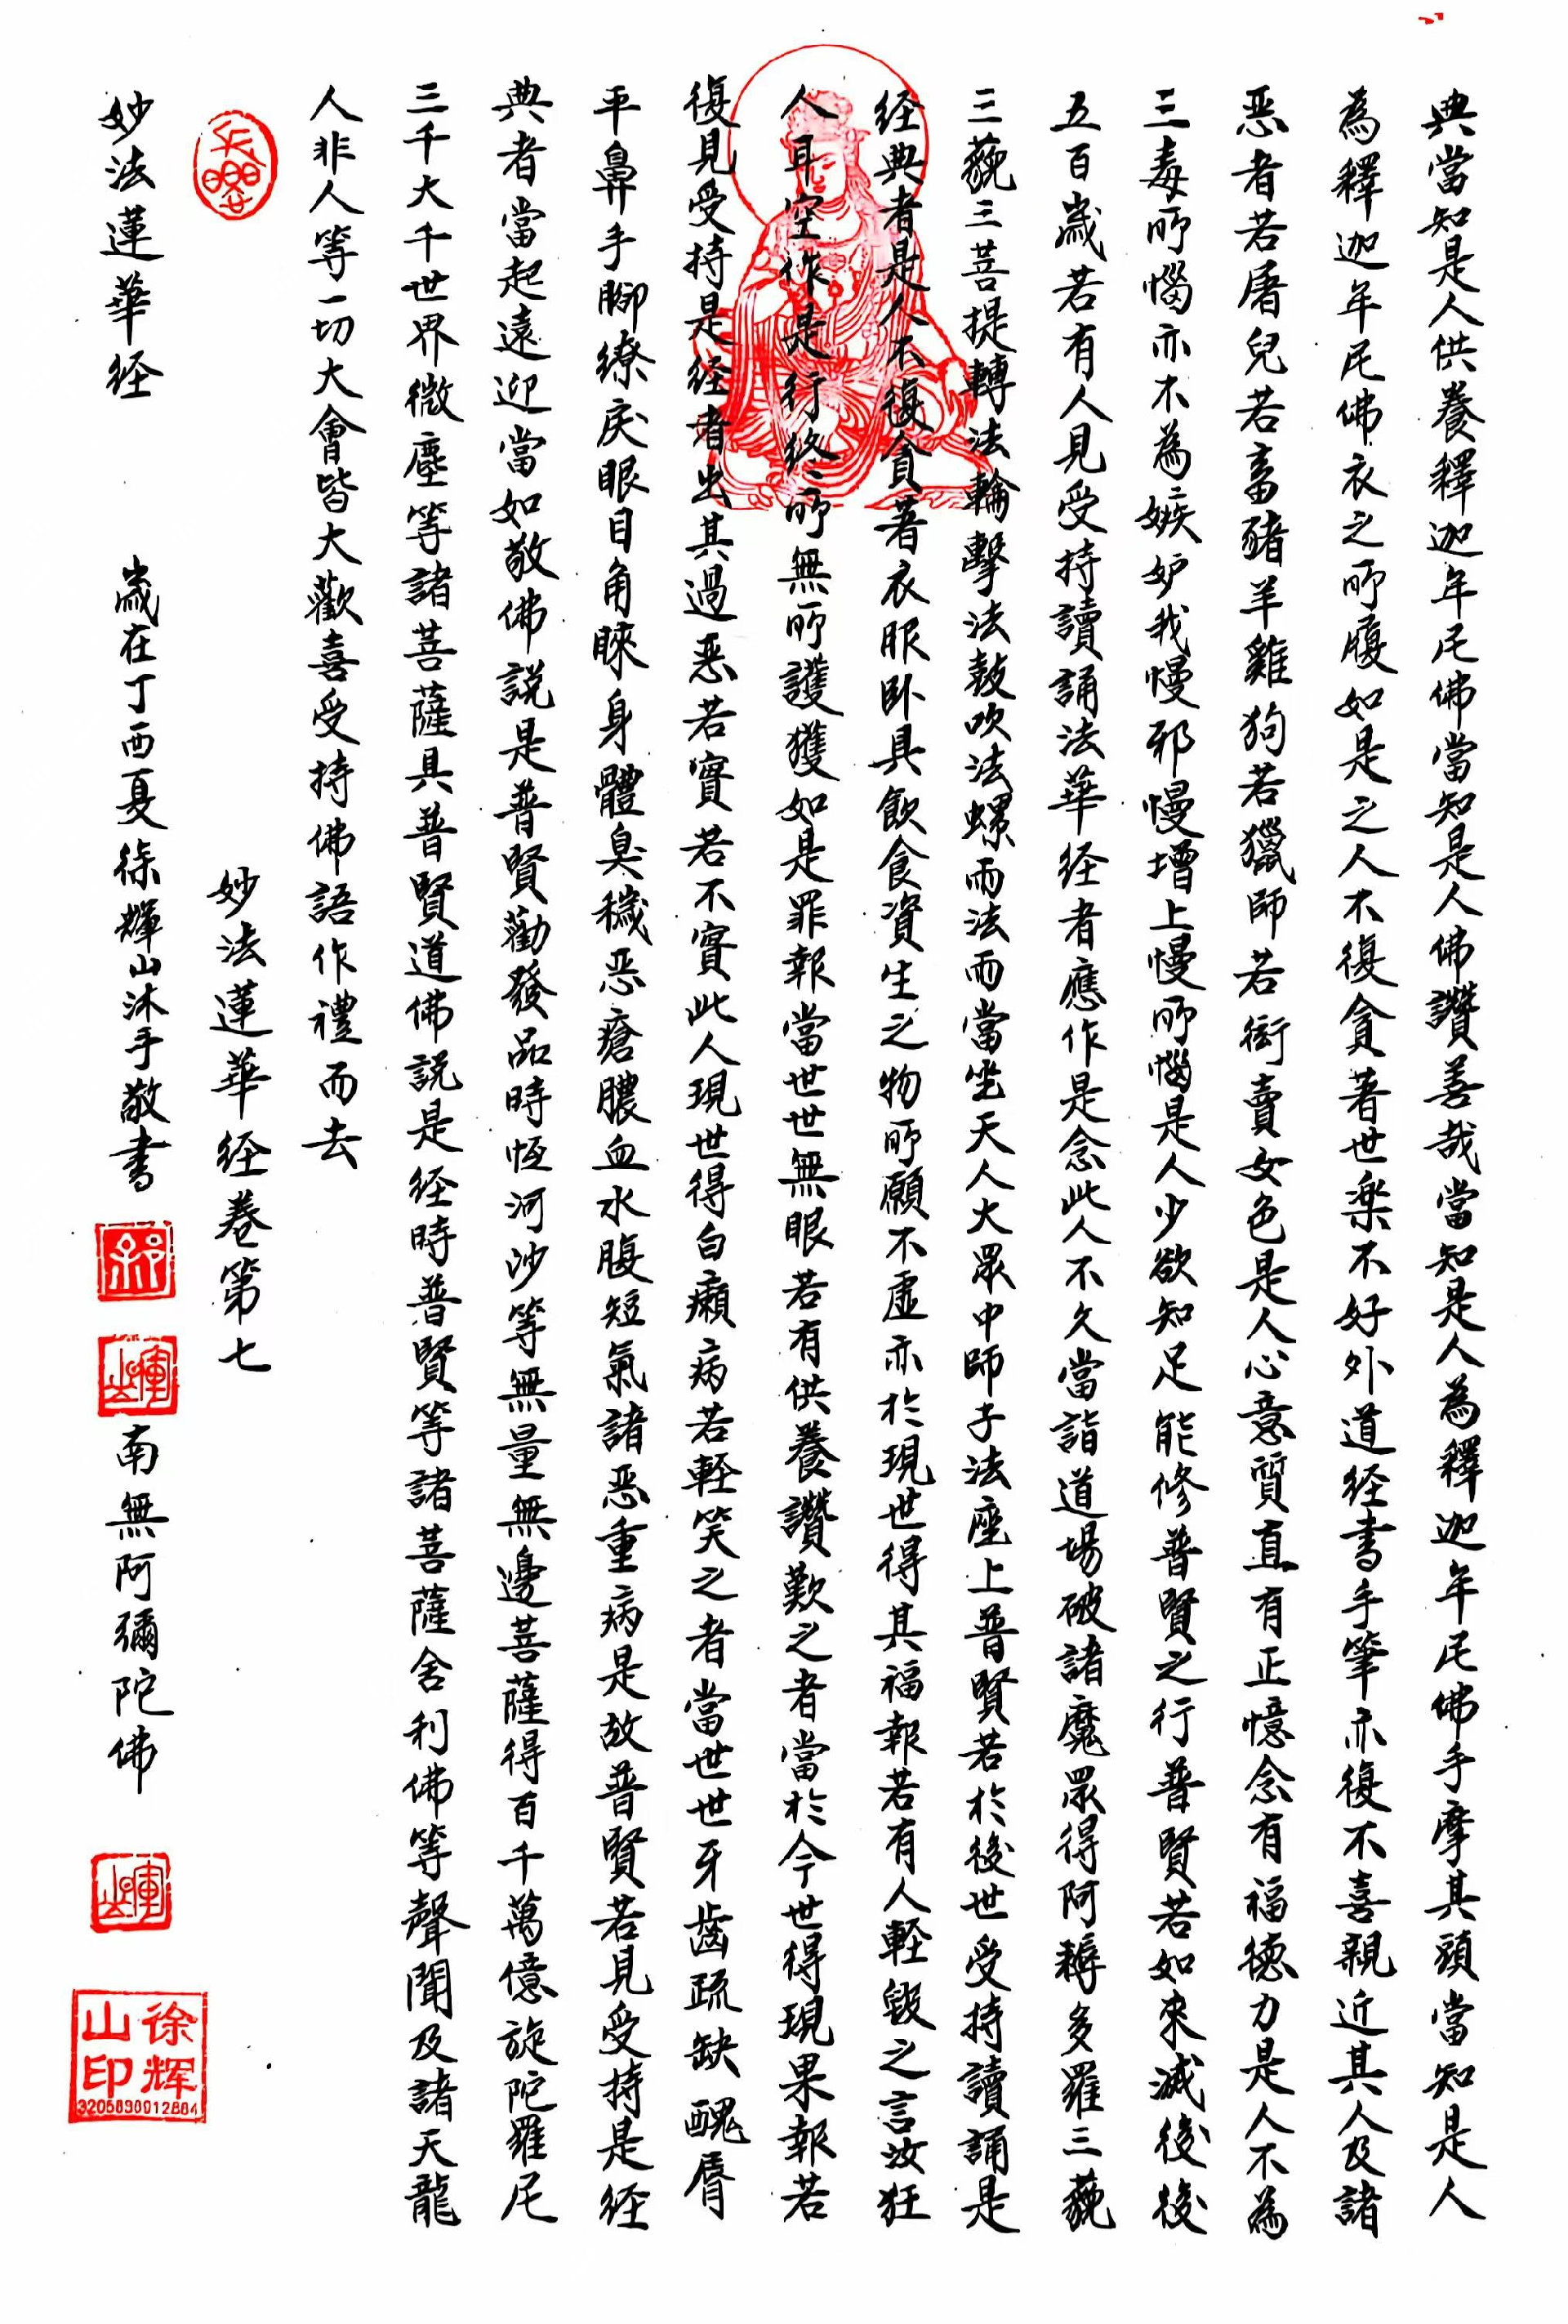 典當知是人供養釋迦牟尼佛當知是人佛讚善哉當知是人為釋迦牟尼佛手摩其頭當知是人
為釋迦牟尼佛衣之所覆如是之人不復貪著世樂不好外道经書手筆亦復不喜親近其人及諸
恶者若屠兒若畜豬羊雞狗若獵師若衒賣女色是人心意質直有正憶念有福德力是人不為
三毒所惱亦不為嫉妒我慢邪慢增上慢所惱是人少欲知足能修普賢之行普賢若如来滅後後
五百歲若有人見受持讀誦法華经者應作是念此人不久當詣道場破諸魔眾得阿耨多羅三藐
三藐三菩提轉法輪擊法鼓吹法螺雨法雨當坐天人大眾中師子法座上普賢若於後世受持讀誦是
经典者是人不復貪著衣服卧具飲食資生之物所願不虛亦於現世得其福報若有人輕毀之言汝狂
人耳空作是行终所無所護獲如是罪報當世世無眼若有供養讚歎之者當於今世得現果報若
復見受持是经者出其過恶若實若不實此人現世得白癩病若輕笑之者當世世牙齒疏缺醜脣
平鼻手腳繚戾眼目角睞身體臭穢恶瘡膿血水腹短氣諸恶重病是故普賢若見受持是经
典者當起遠迎當如敬佛說是普賢勸發品時恆河沙等無量無邊菩薩得百千萬億旋陀羅尼
三千大千世界微塵等諸菩薩具普賢道佛說是经時普賢等諸菩薩舍利佛等聲聞及諸天龍
人非人等一切大會皆大歡喜受持佛語作禮而去
妙法蓮華经卷第七
妙法蓮華经 歲在丁酉夏徐輝山沐手敬書 南無阿彌陀佛
徐辉山印
3205830912884